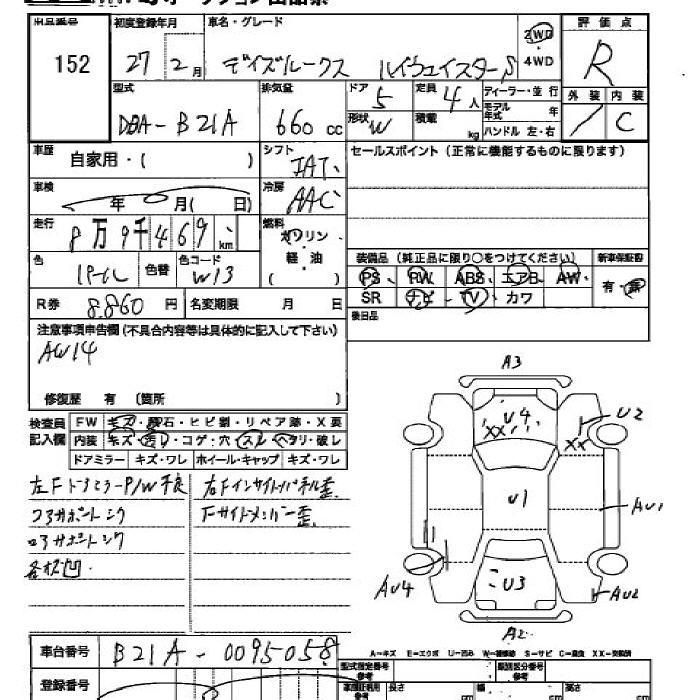 出品番号 初度登録年月 車名・グレード 2WD 評価点
152 27 2月 デイズルークス ハイウェイスターS ・4WD R
型式 排気量 ドア 5 定員 4人 ディーラー・並行 外装 内装
DBA-B21A 660cc 形状 W 積載 kg モデル年式 年 ハンドル 左・右 / C
車歴 自家用・( ) シフト IAT セールスポイント(正常に機能するものに限ります)
車検 年 月( 日) 冷房 AAC
走行 8万9千469km 燃料 ガソリン・軽・油 ( )
装備品(純正品に限り○をつけてください) 新車保証書
色 パール 色替 色コード W13 PS PW ABS エアB AW 有・無
R券 8.860円 名変期限 月 日 SR ナビ TV カワ
後日品
注意事項申告欄(不具合内容等は具体的に記入して下さい)
AW14
修復歴 有 (箇所 )
検査員 FW キズ・飛石・ヒビ割・リペア跡・X要
記入欄 内装 キズ・汚レ・コゲ・穴・スレ・ヘタリ・破レ
ドアミラー キズ・ワレ ホイール・キャップ キズ・ワレ
左Fドアミラー P/W不良 右Fインサイドパネル歪
コアサポートシワ Fサイドメンバー歪
ロアサポートシワ
各板凹
A3
U4
XX
U2
XX
U1
AU1
AU4
U3
AU2
A2
車台番号 B21A-0095058
A-キズ E-エクボ U-凹み W-補修跡 S-サビ C-腐食 XX-交換済
登録番号 型式指定番号 参考 類別区分番号 参考
長さ cm 幅 cm 高さ cm